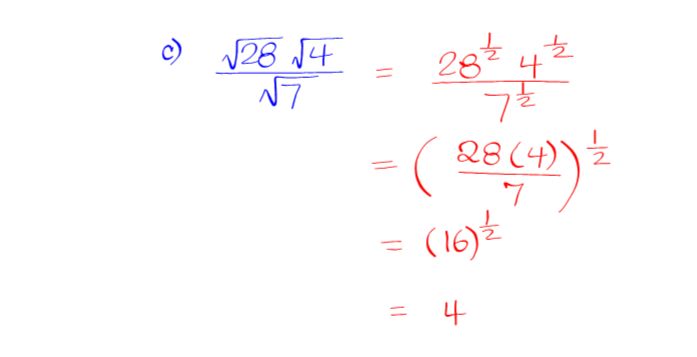 c) √28 √4 / √7 = 28^(1/2) 4^(1/2) / 7^(1/2)
= (28(4) / 7)^(1/2)
= (16)^(1/2)
= 4